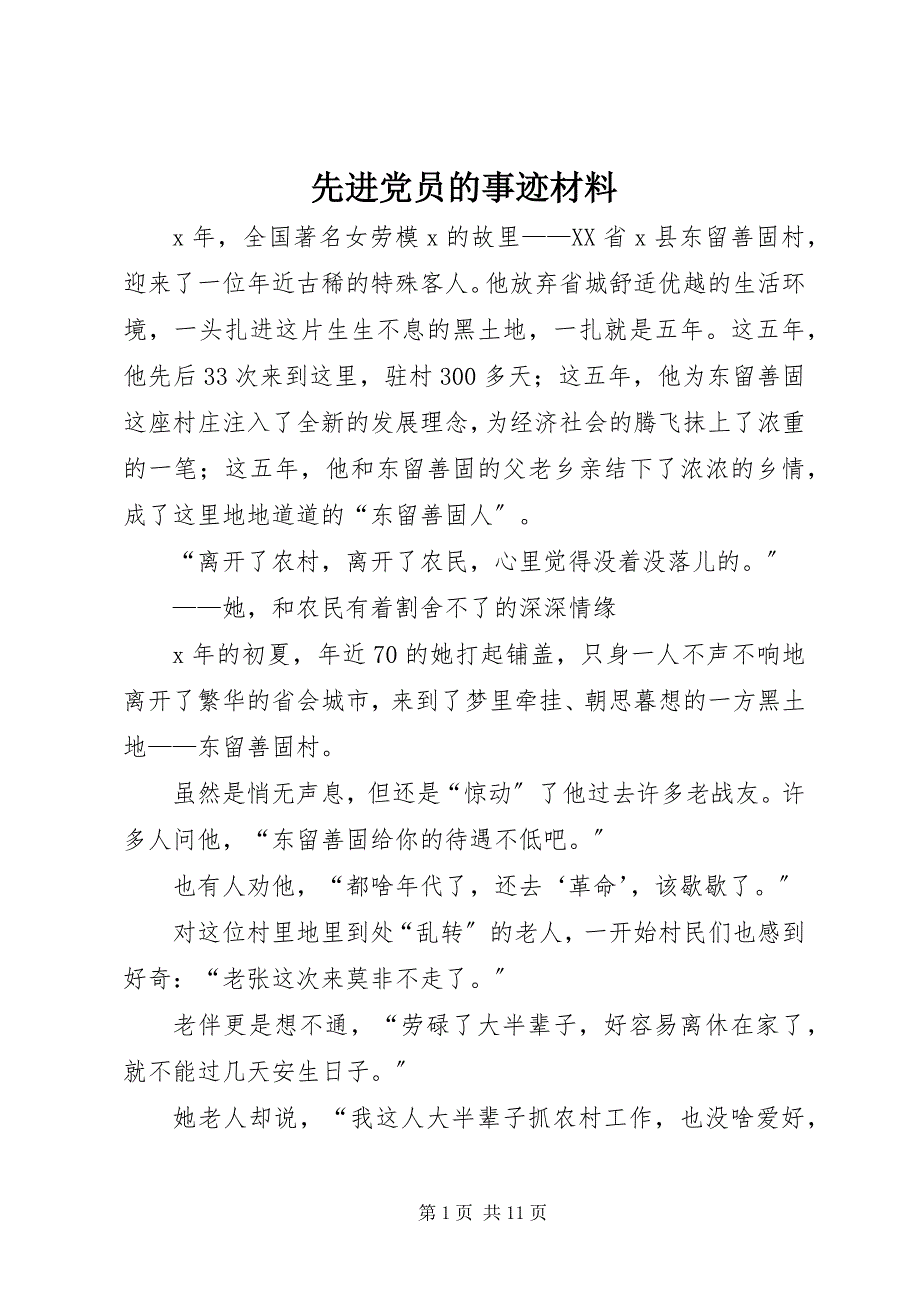 先进党员的事迹材料
x 年，全国著名女劳模 x 的故里——XX 省 x 县东留善固村，
迎来了一位年近古稀的特殊客人。他放弃省城舒适优越的生活环
境，一头扎进这片生生不息的黑土地，一扎就是五年。这五年，
他先后 33 次来到这里，驻村 300 多天；这五年，他为东留善固
这座村庄注入了全新的发展理念，为经济社会的腾飞抹上了浓重
的一笔；这五年，他和东留善固的父老乡亲结下了浓浓的乡情，
成了这里地地道道的“东留善固人〞。
“离开了农村，离开了农民，心里觉得没着没落儿的。〞
——她，和农民有着割舍不了的深深情缘
x 年的初夏，年近 70 的她打起铺盖，只身一人不声不响地
离开了繁华的省会城市，来到了梦里牵挂、朝思暮想的一方黑土
地——东留善固村。
虽然是悄无声息，但还是“惊动〞了他过去许多老战友。许
多人问他，“东留善固给你的待遇不低吧。〞
也有人劝他，“都啥年代了，还去‘革命’，该歇歇了。〞
对这位村里地里到处“乱转〞的老人，一开始村民们也感到
好奇：“老张这次来莫非不走了。〞
老伴更是想不通，“劳碌了大半辈子，好容易离休在家了，
就不能过几天安生日子。〞
她老人却说，“我这人大半辈子抓农村工作，也没啥爱好，
第 1 页 共 11 页